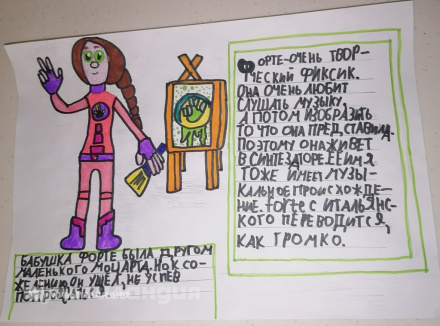 ФОРТЕ-ОЧЕНЬ ТВОР-
ЧЕСКИЙ ФИКСИК.
ОНА ОЧЕНЬ ЛЮБИТ
СЛУШАТЬ МУЗЫКУ,
А ПОТОМ ИЗОБРАЗИТЬ
ТО ЧТО ОНА ПРЕДСТАВИЛА.
ПОЭТОМУ ОНА ЖИВЕТ
В СИНТЕЗАТОРЕ. ЕЕ ИМЯ
ТОЖЕ ИМЕЕТ МУЗЫ-
КАЛЬНОЕ ПРОИСХОЖДЕ-
НИЕ. forte С ИТАЛЬЯНС-
КОГО ПЕРЕВОДИТСЯ,
КАК ГРОМКО.
БАБУШКА ФОРТЕ БЫЛА ДРУГОМ
МАЛЕНЬКОГО МОЦАРТА. НО, К СО-
ЖЕЛЕНИЮ, ОН УШЕЛ, НЕ УСПЕВ